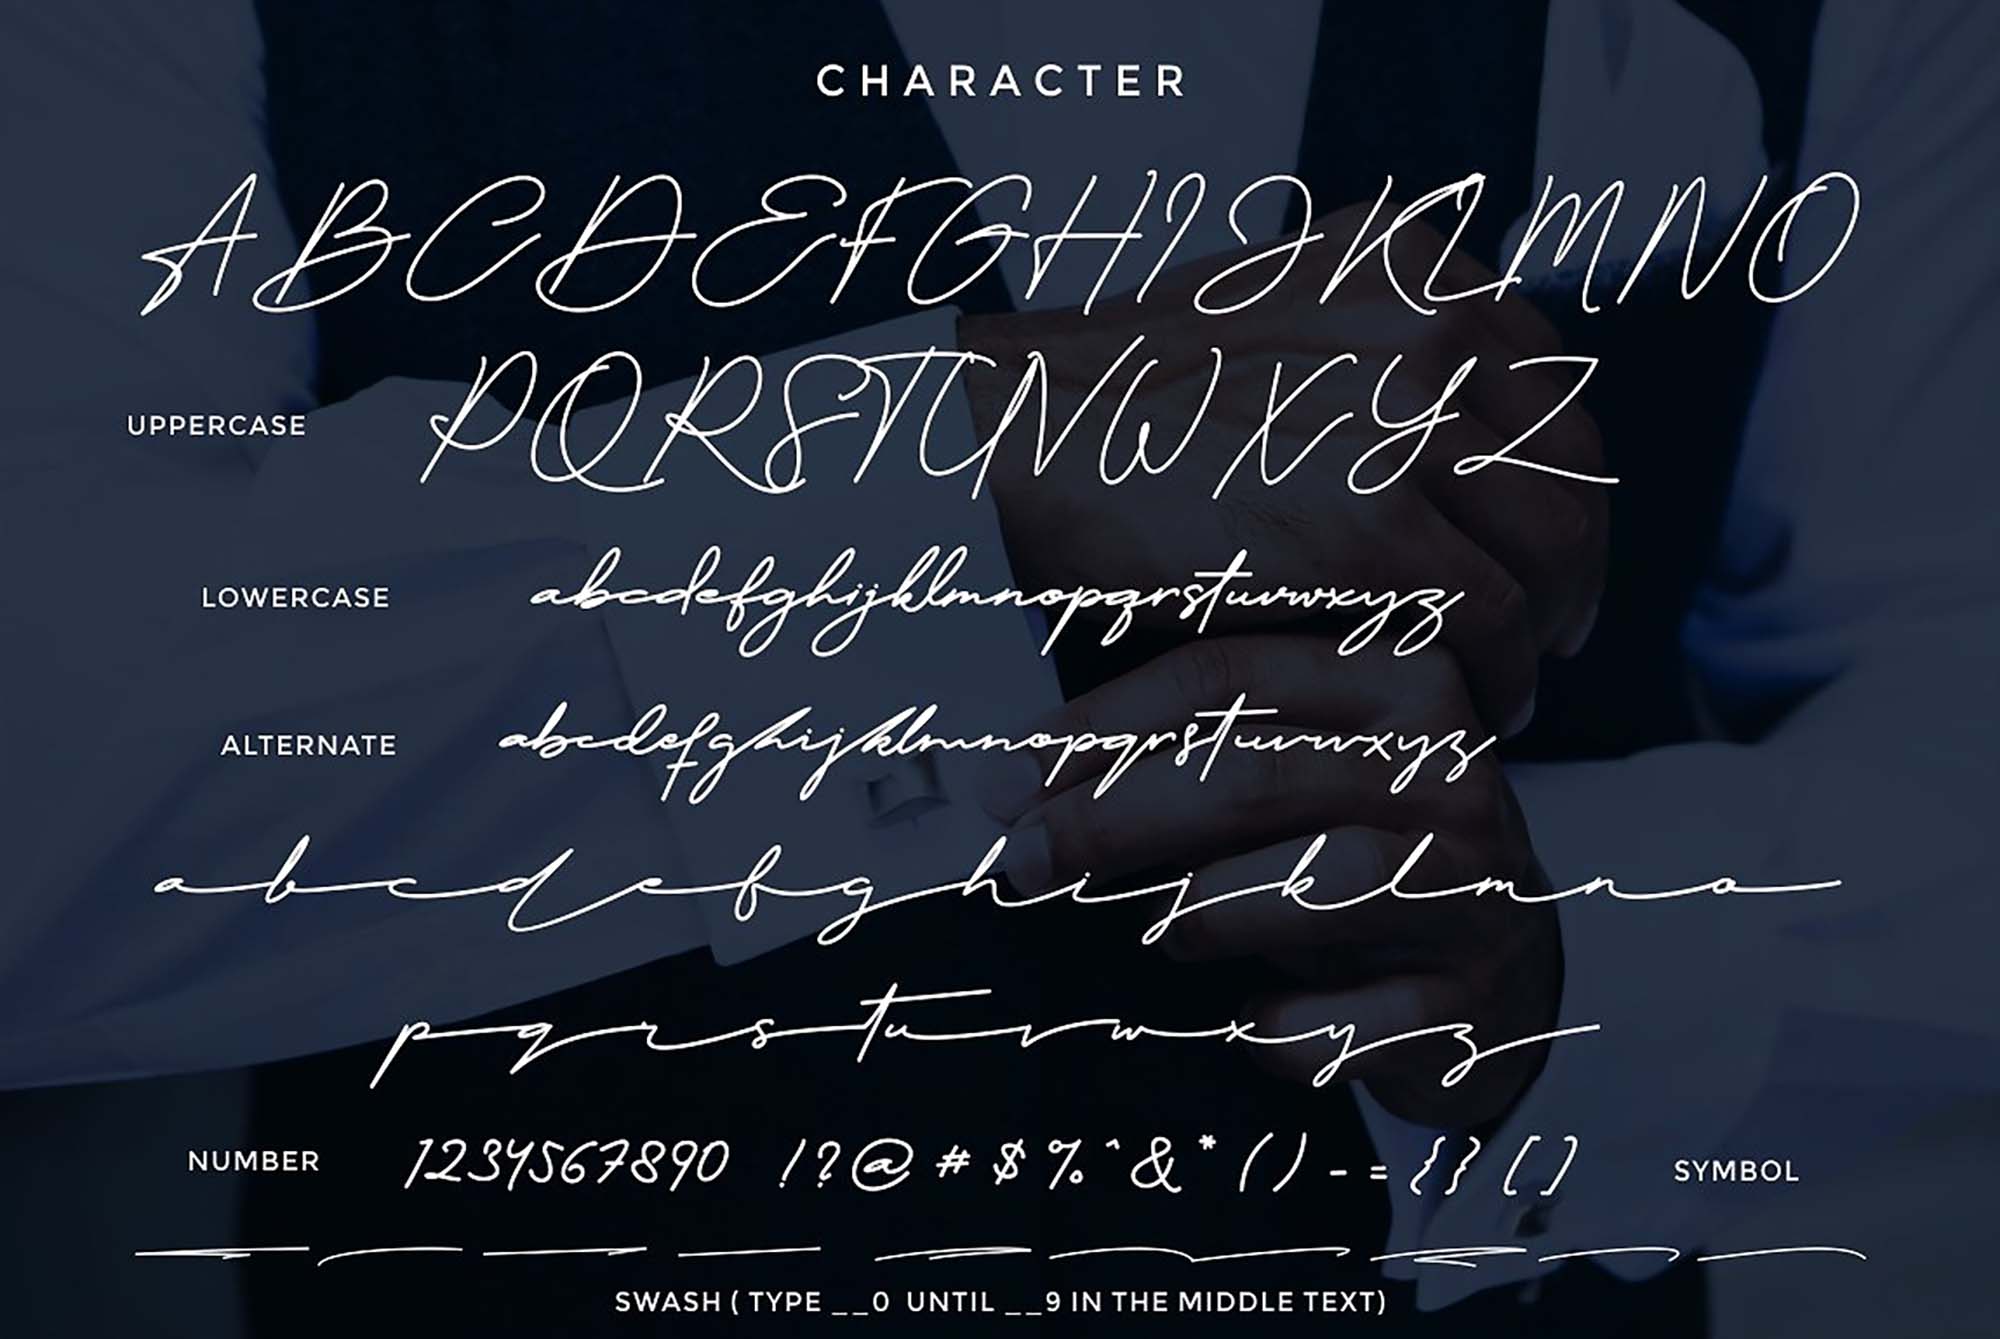 CHARACTER
ABCDEFGHIJKLMNO
UPPERCASE PQRSTUVWXYZ
LOWERCASE abcdefghijklmnopqrstuvwxyz
ALTERNATE abcdefghijklmnopqrstuvwxyz
abcdefghijklmno
pqrstuvwxyz
NUMBER 1234567890 !?@#$%^&*()-={}[] SYMBOL
SWASH ( TYPE __0 UNTIL __9 IN THE MIDDLE TEXT)